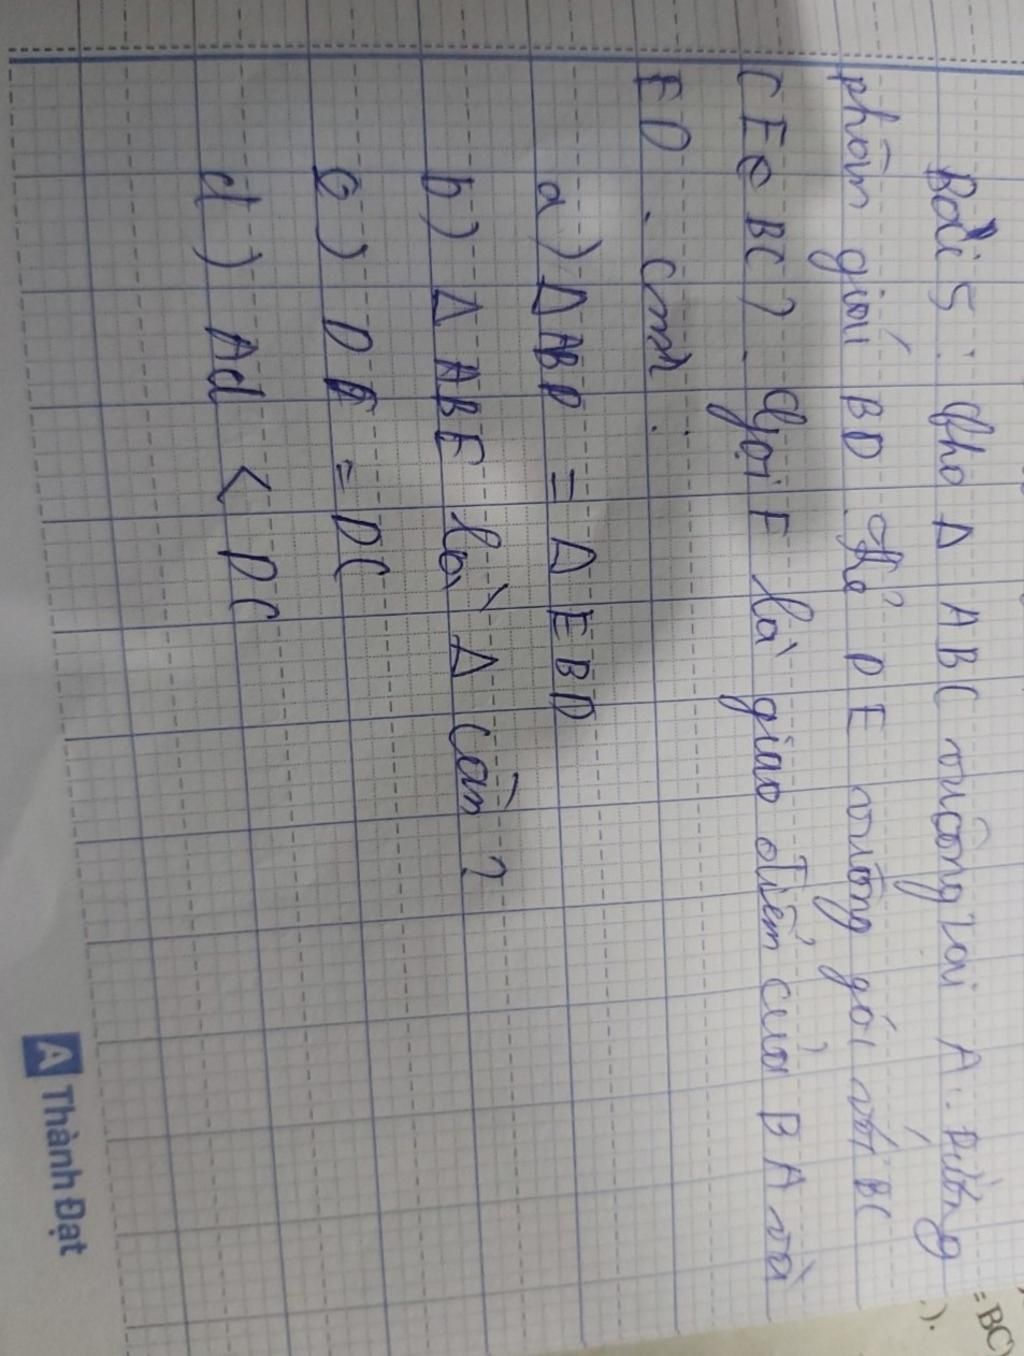 Bài 5 : Cho Δ ABC vuông tại A. Đường
phân giác BD. Kẻ DE vuông góc với BC
(E ∈ BC). Gọi F là giao điểm của BA và
ED. Cmr :
a) Δ ABD = Δ EBD
b) Δ ABE là Δ cân ?
c) DF = DC
d) Ad < DC
A Thành Đạt
= BC)
).